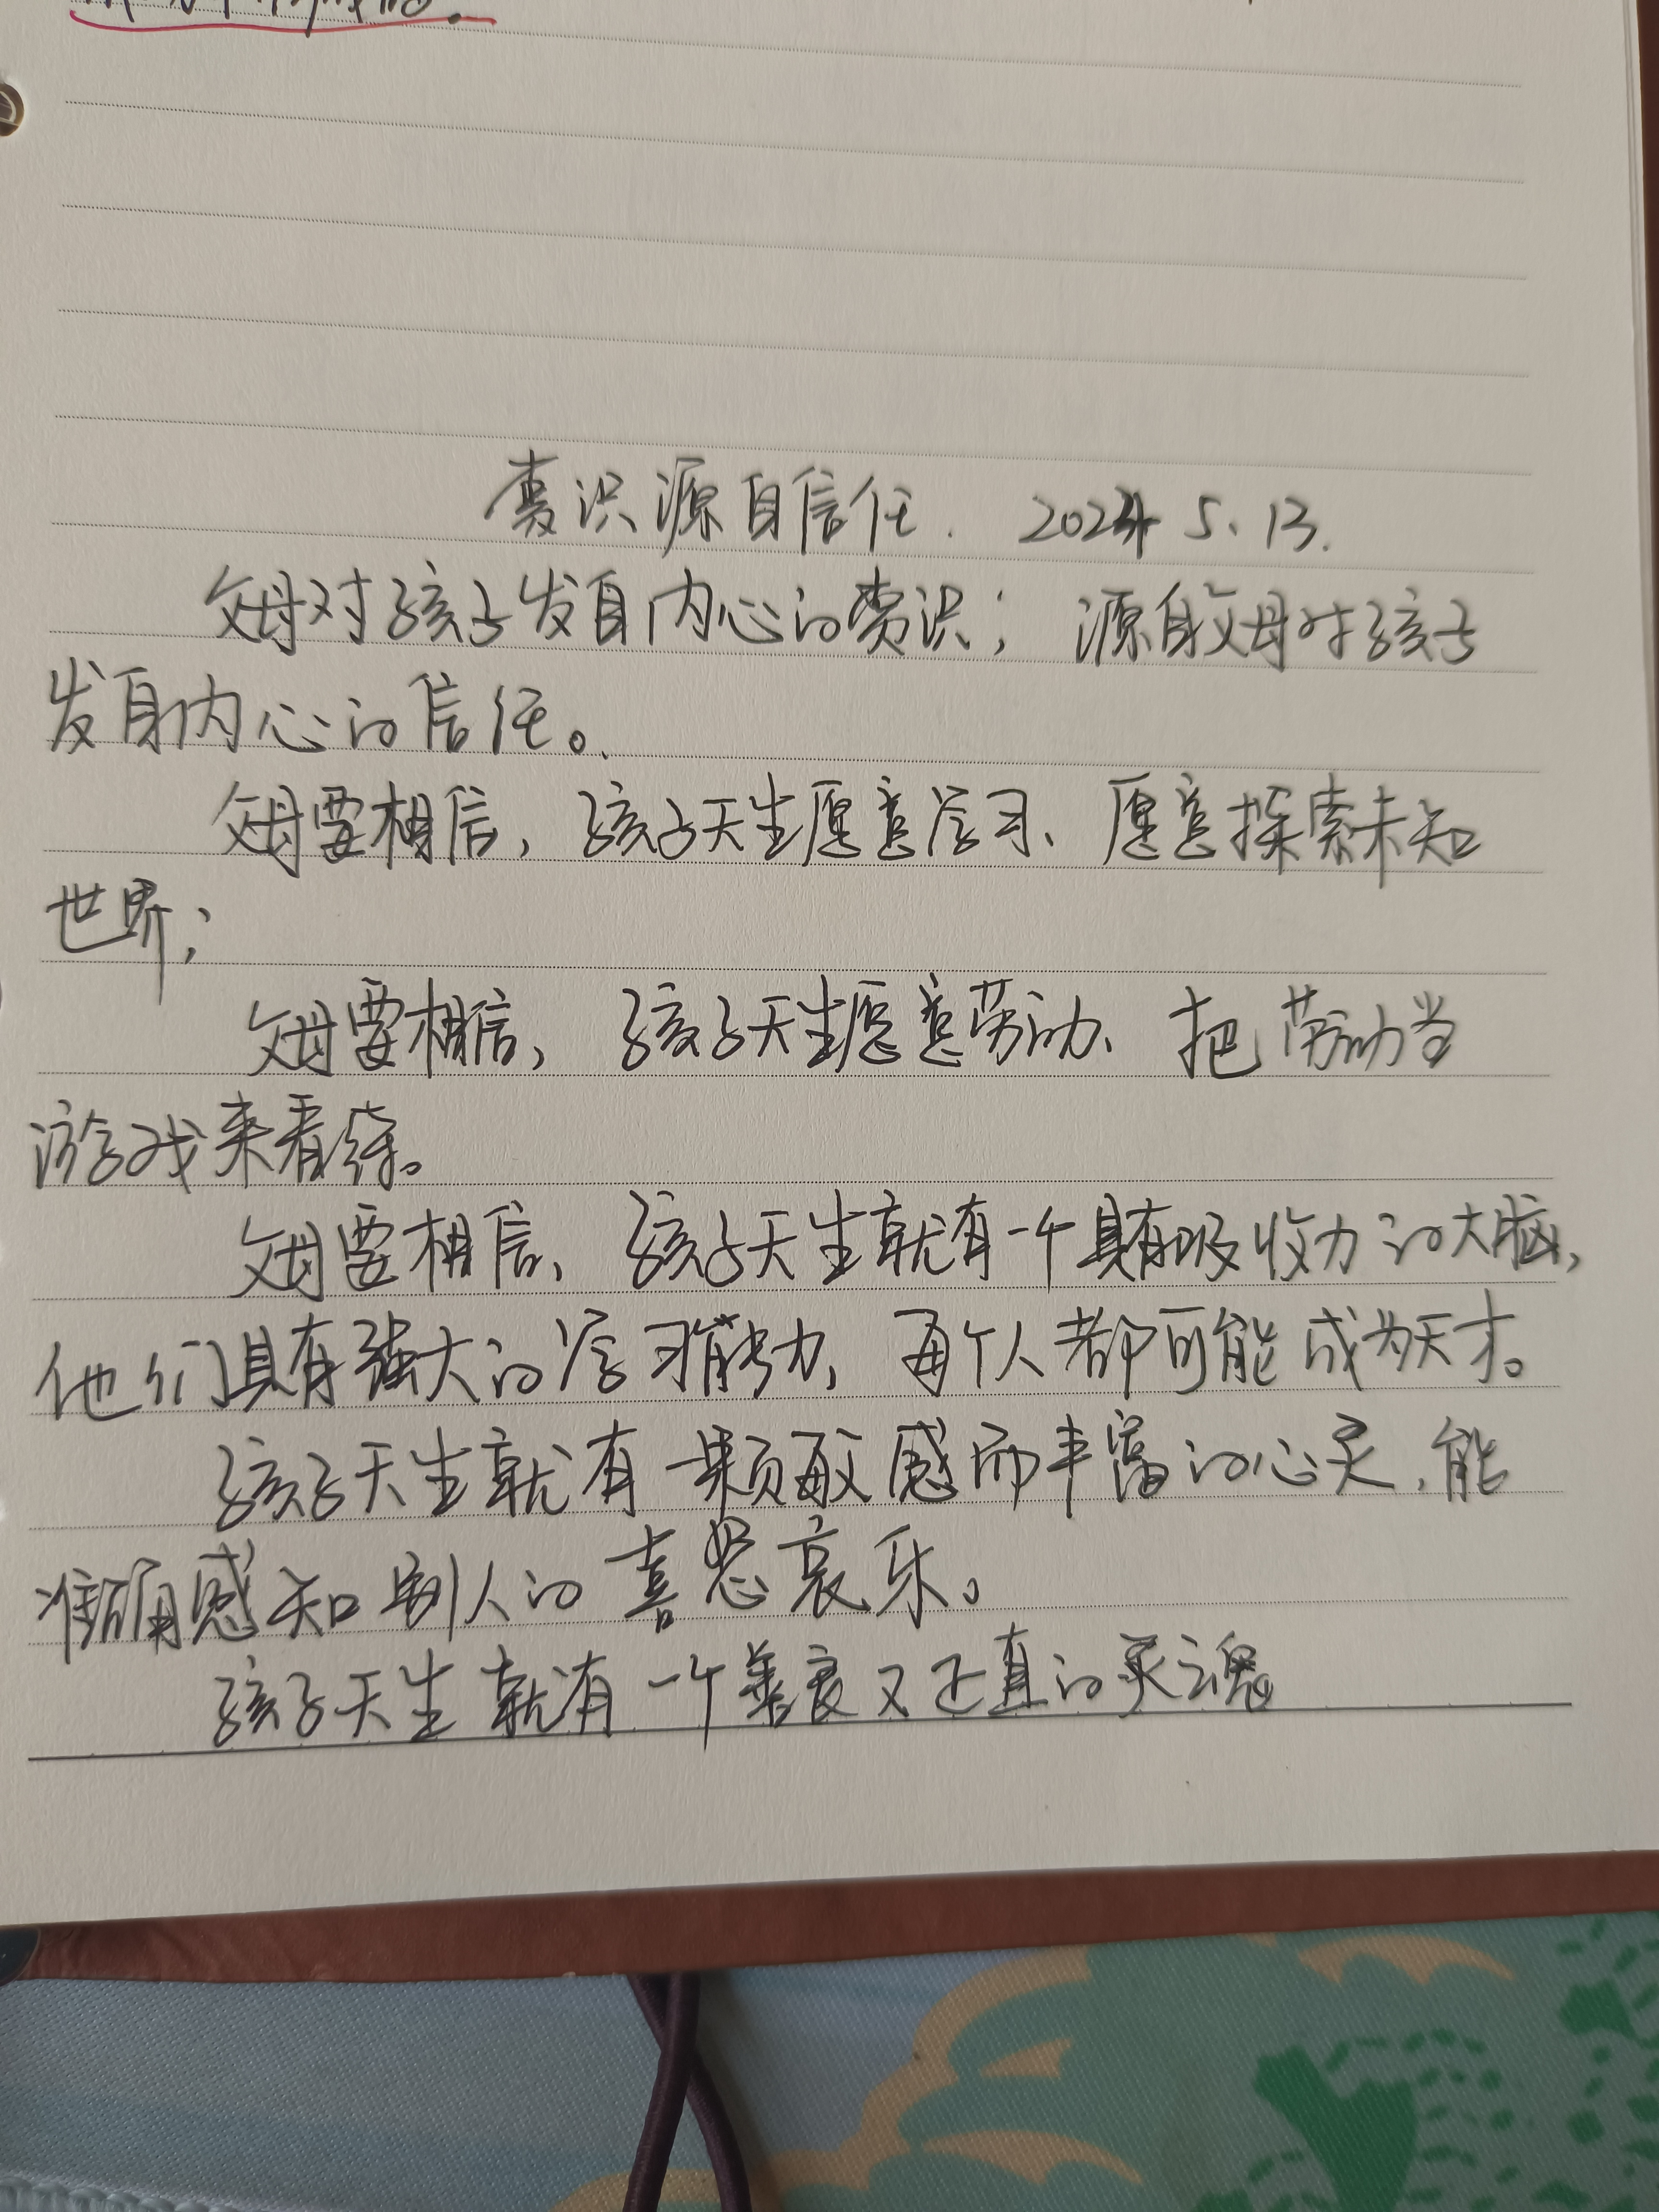 赏识源自信任. 2024 5.13.
父母对孩子发自内心的赏识; 源自父母对孩子
发自内心的信任。
父母要相信,孩子天生愿意学习、愿意探索未知
世界;
父母要相信,孩子天生愿意劳动、把劳动当
游戏来看待。
父母要相信、孩子天生就有一个具有吸收力的大脑,
他们具有强大的学习能力,每个人都可能成为天才。
孩子天生就有一颗敏感而丰富的心灵,能
准确感知别人的喜怒哀乐。
孩子天生就有一个善良又正直的灵魂。